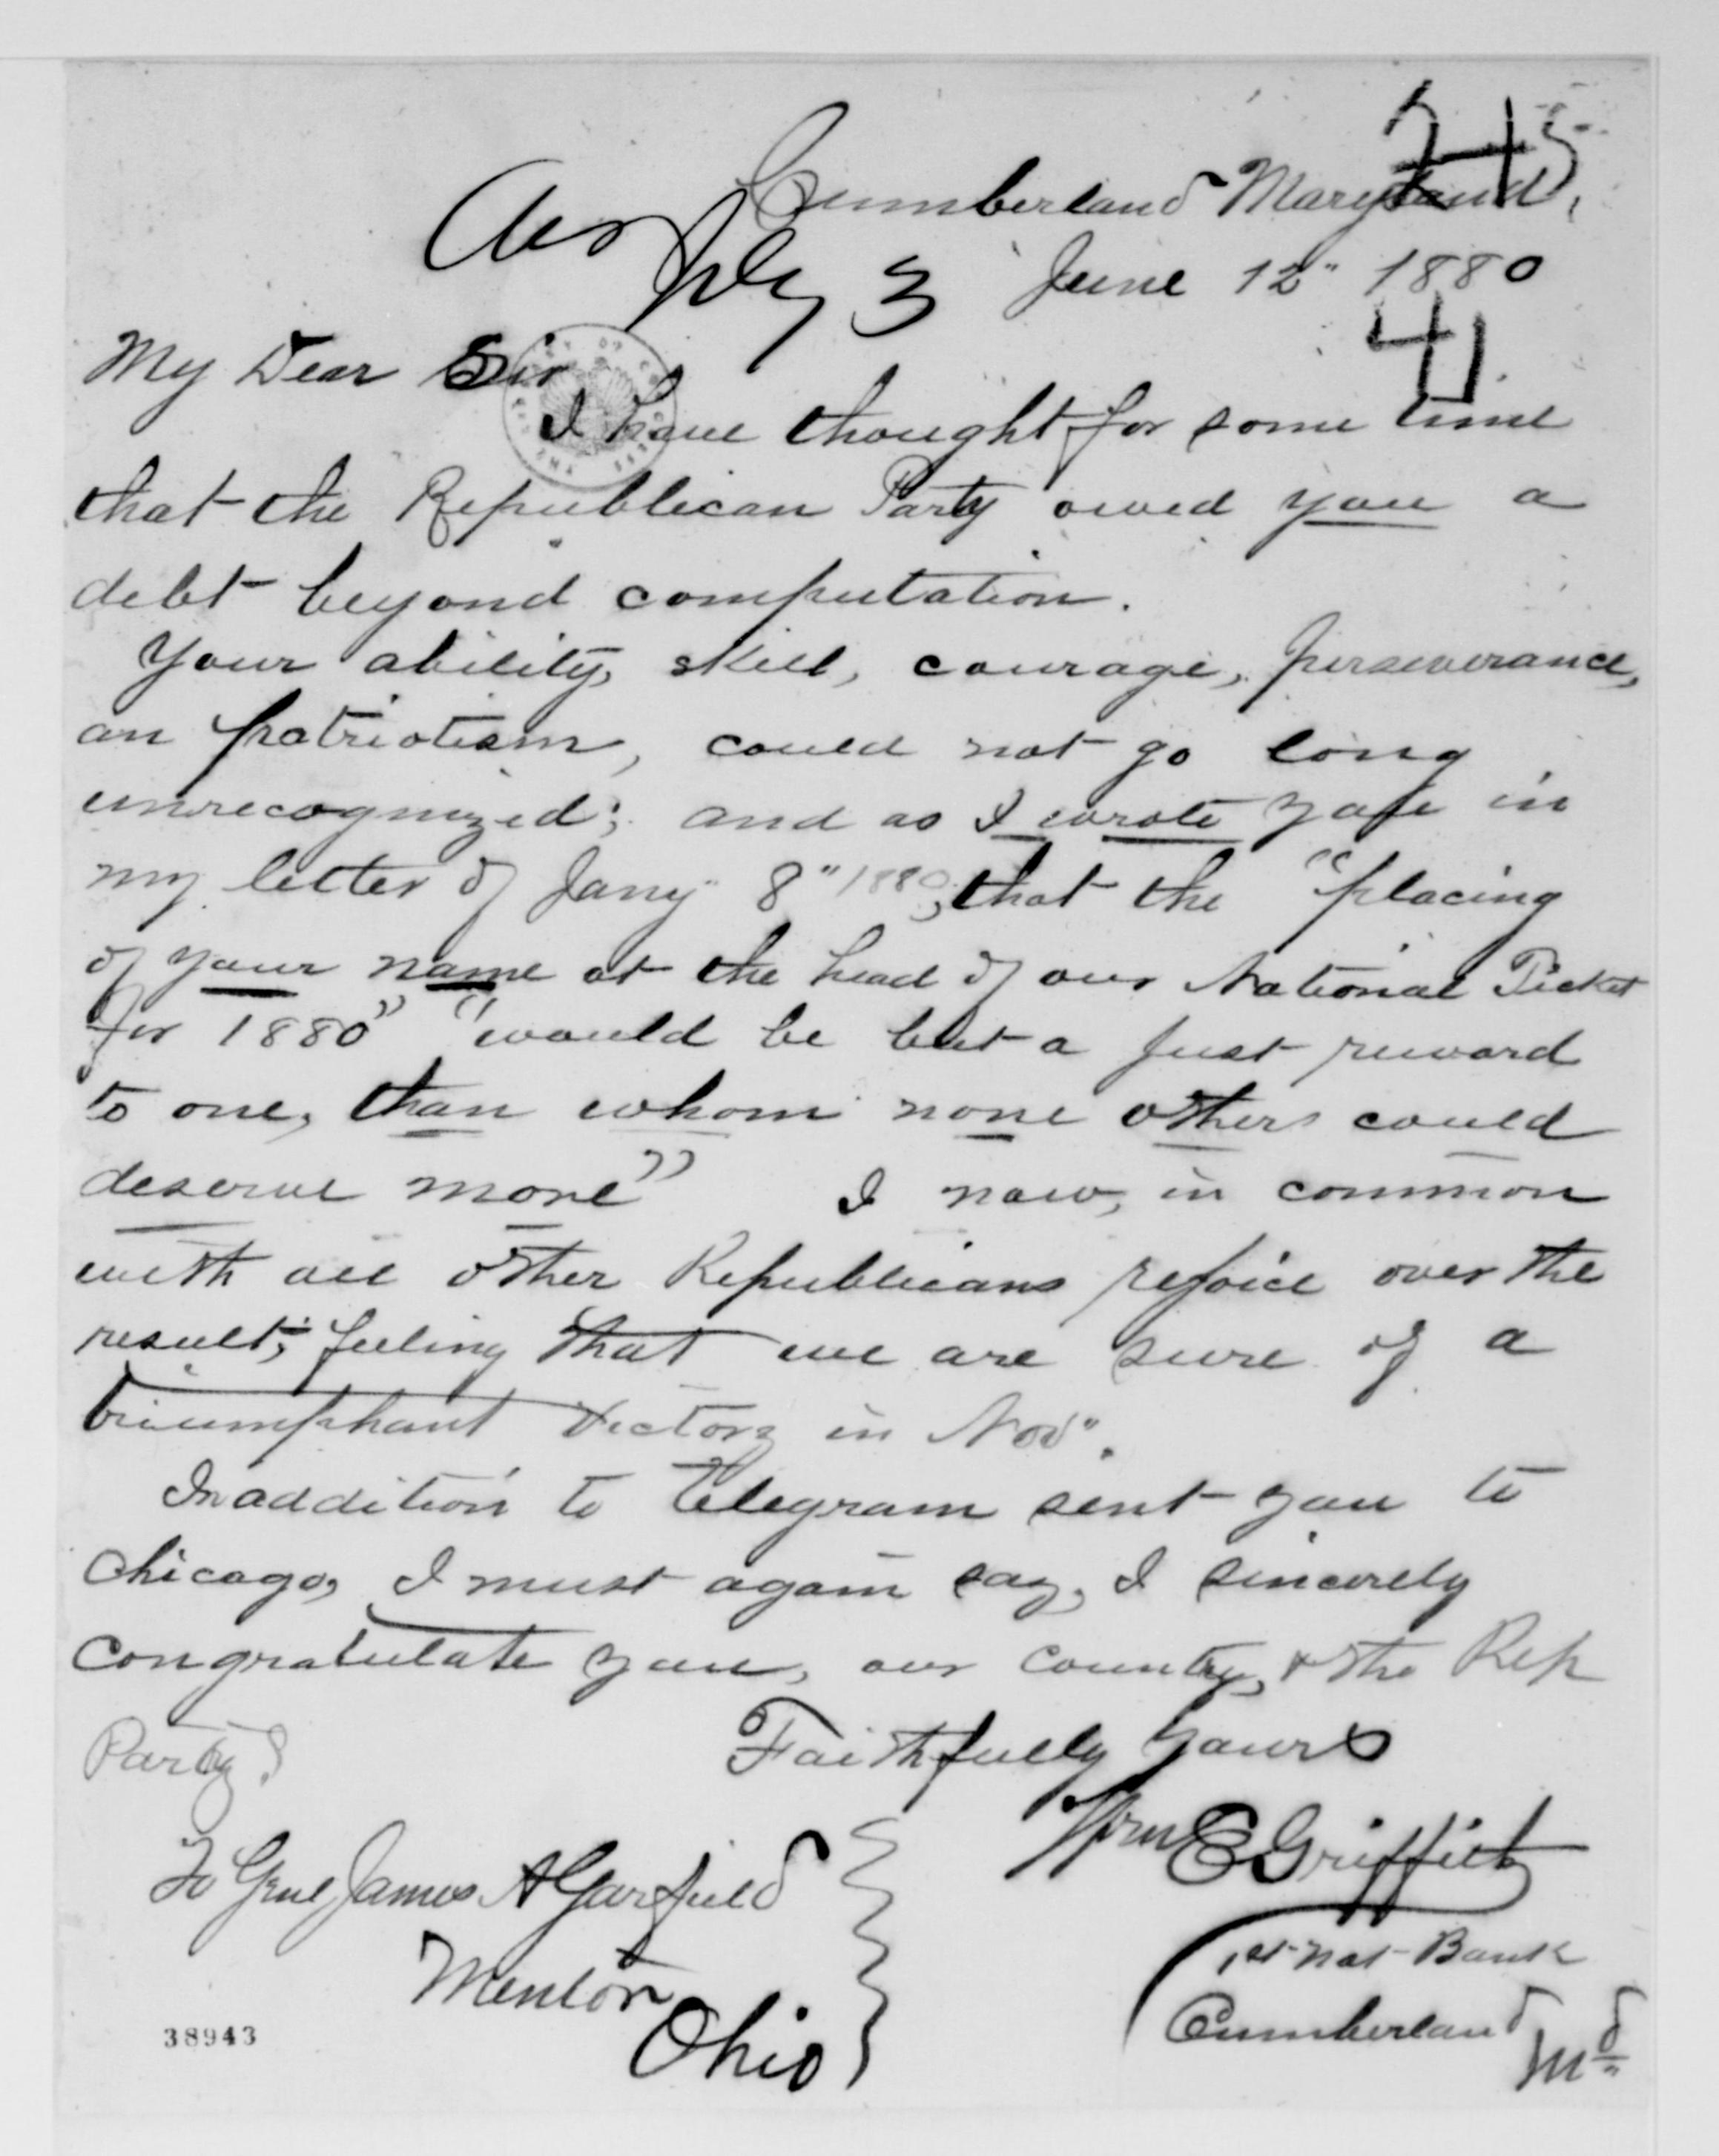 245
Cumberland Maryland,
Ans July 3
June 12" 1880
41
My Dear Sir
I have thought for some time
that the Republican Party owed you a
debt beyond computation.
Your ability, skill, courage, perseverance,
an patriotism, could not go long
unrecognized; and as I wrote you in
my letter of Jany 8" 1880, that the "placing
of your name at the head of our National Ticket
for 1880" "would be but a just reward
to one, than whom none others could
deserve more" I now, in common
with all other Republicans rejoice over the
result; feeling that we are sure of a
triumphant victory in Nov".
In addition to telegram sent you to
Chicago, I must again say, I sincerely
congratulate you, our country, & the Rep
Party.
Faithfully Yours
Wm E Griffith
1st Nat Bank
Cumberland
Md
To Genl James A Garfield
Mentor
Ohio
38943